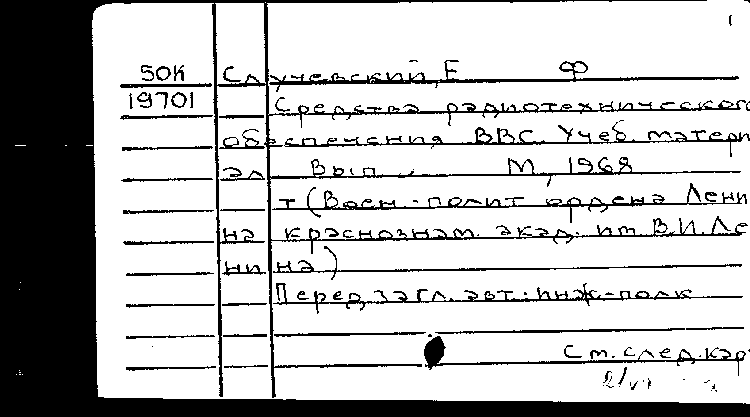 1
50К Случевский, Е Ф
19701 Средства радиотехнического
обеспечения ВВС. Учеб. матери
ал Вып М, 1968
т (Воен.-полит ордена Лени
на краснознам. акад. им. В.И. Ле
нина)
Перед загл. авт.: инж-полк
См. след. кар